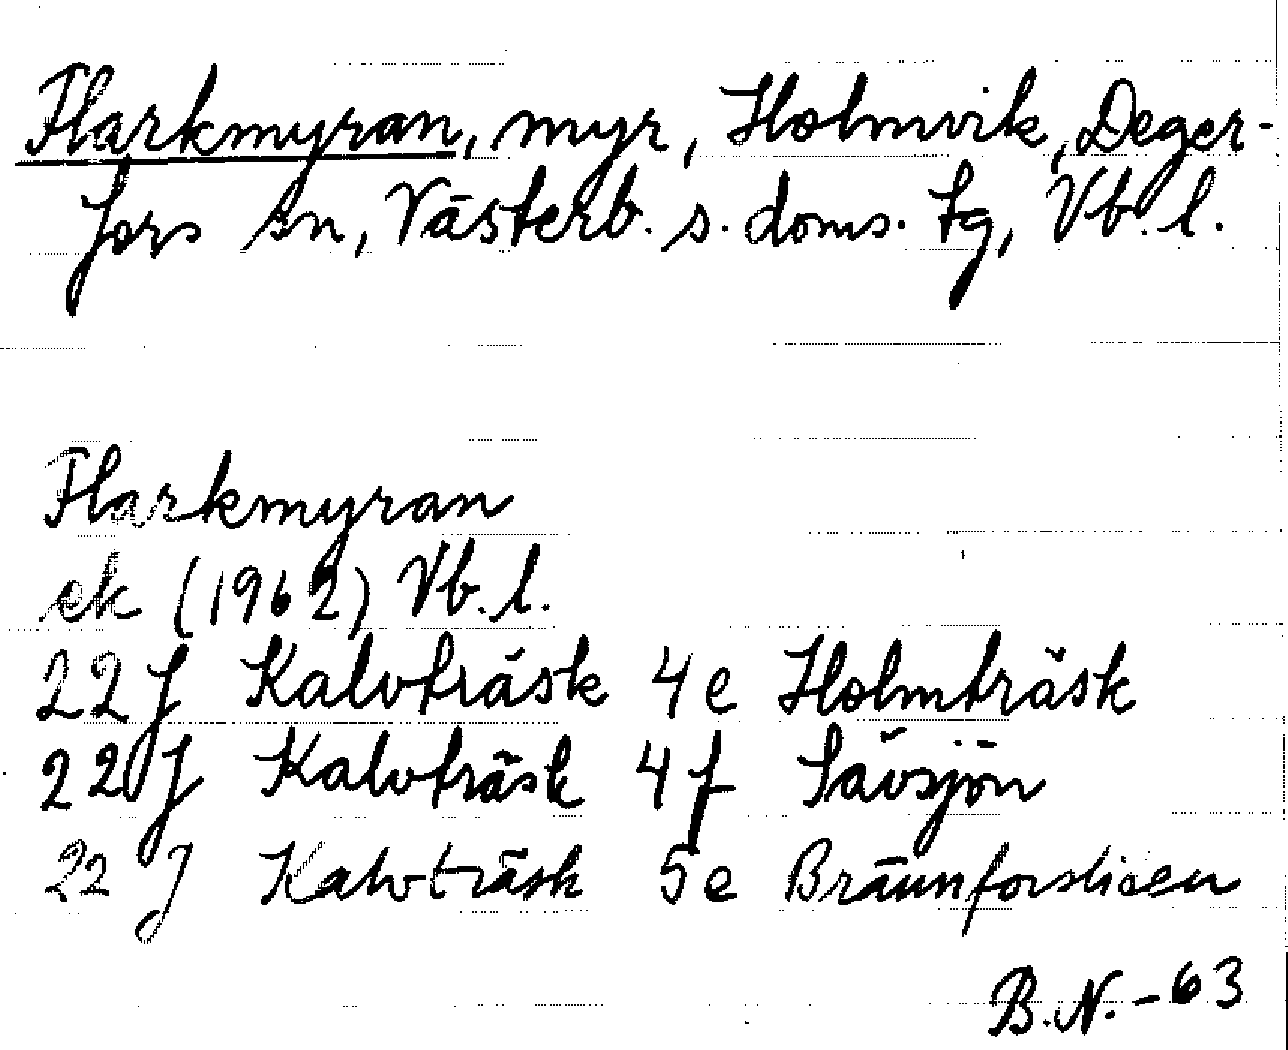 Flarkmyran, myr, Holmvik, Deger-
fors sn, Västerb. s. doms. tg, Vb. l.
Flarkmyran
ek (1962) Vb. l.
22 J Kalvträsk 4 e Holmträsk
22 J Kalvträsk 4 f Sävsjön
22 J Kalvträsk 5 e
B.N. - 63